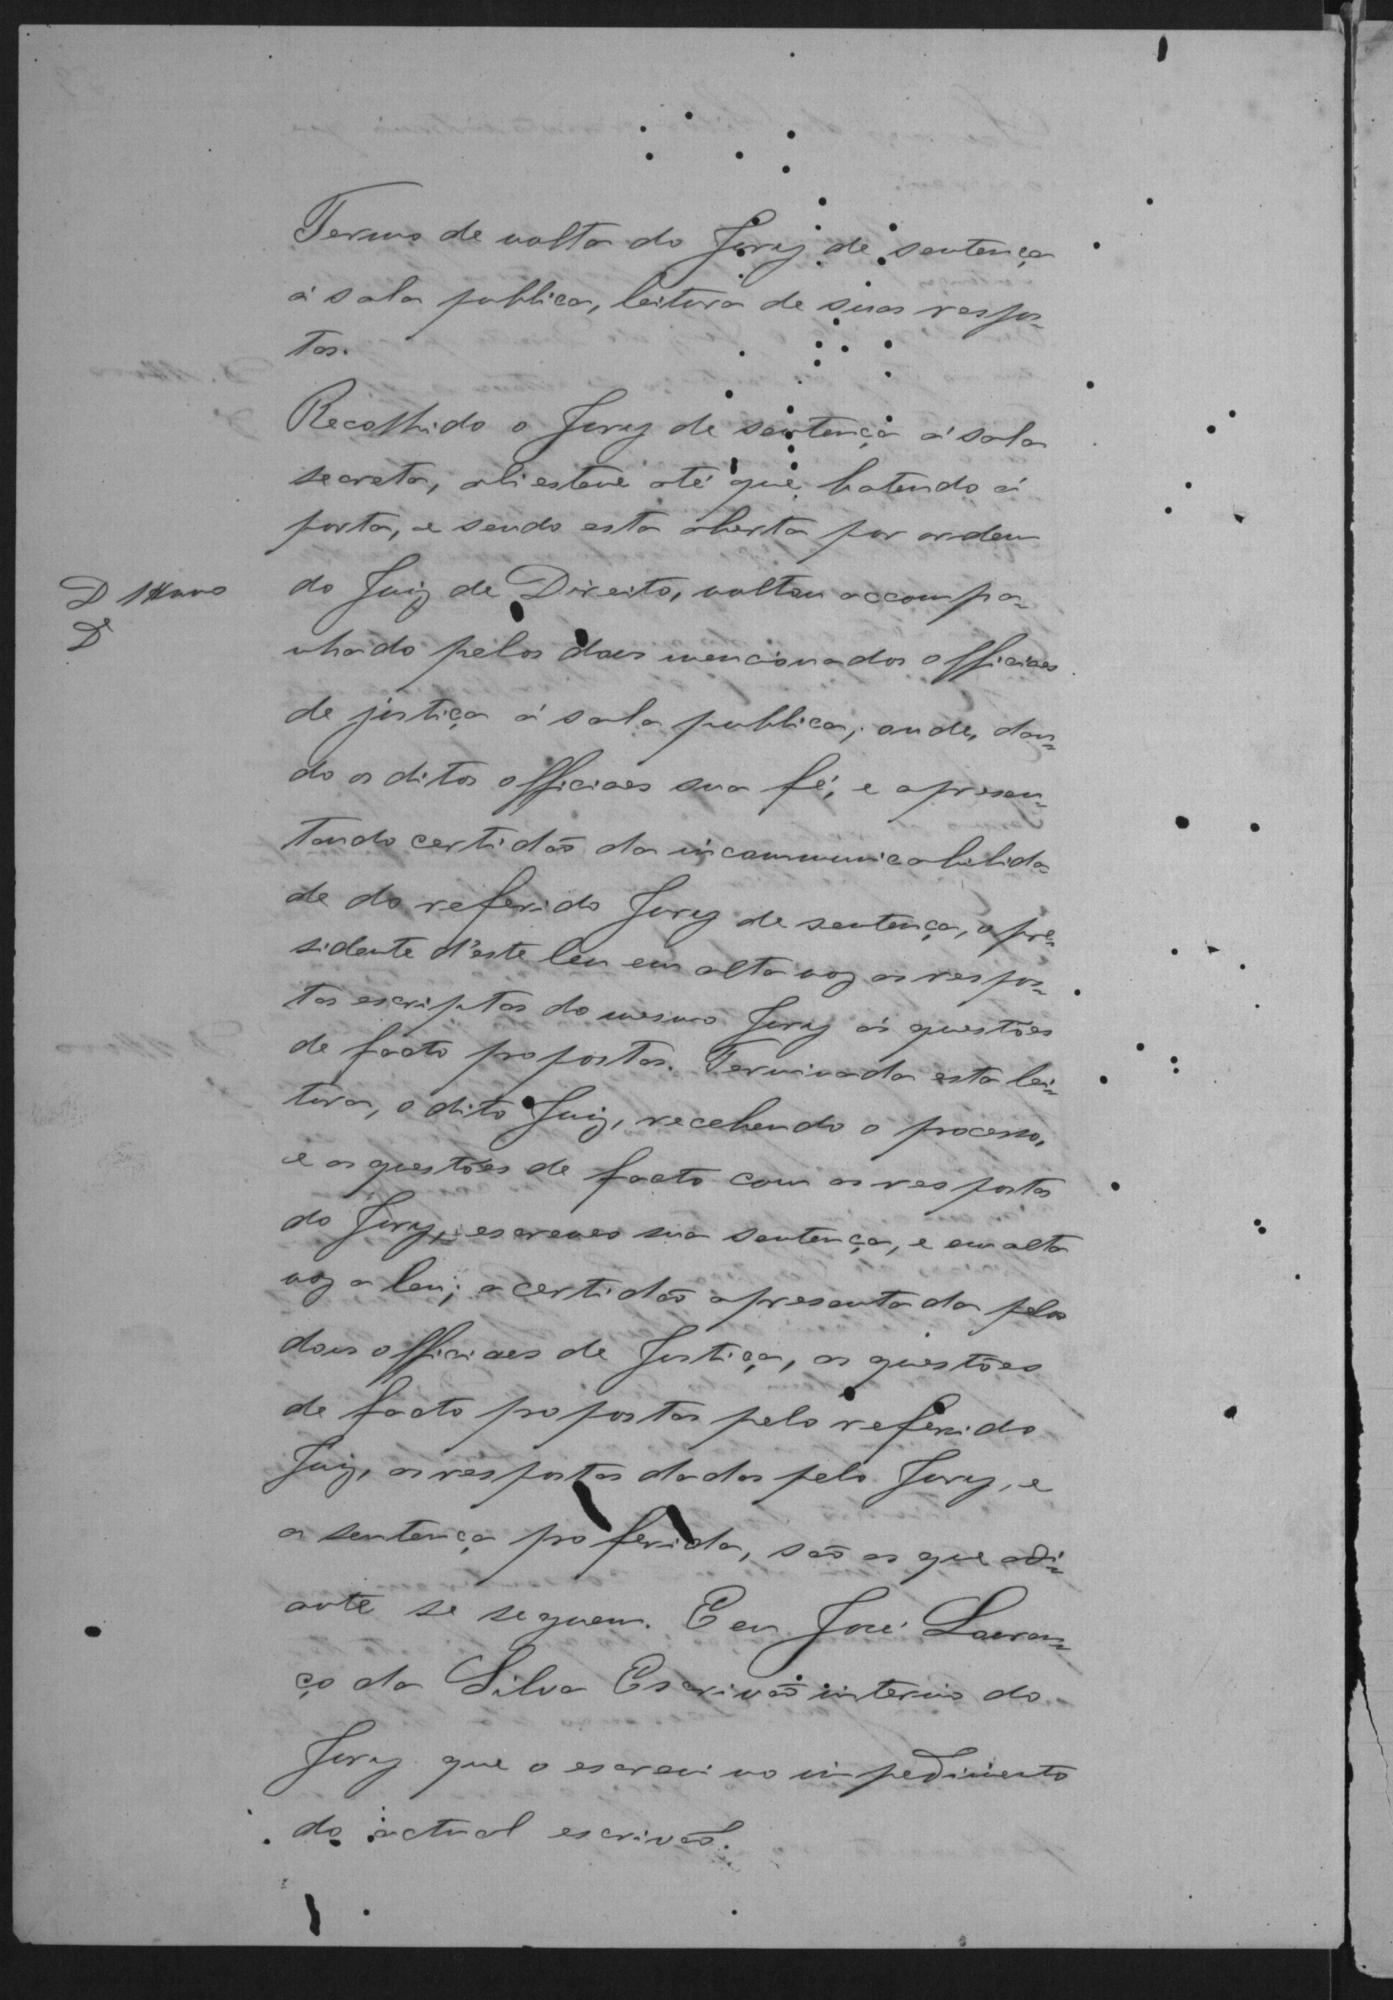 Termo de volta do Jury de sentença
á sala publica, leitura de suas respos-
tas.
Recolhido o Jury de sentença á sala
secreta, ali esteve até que, batendo á
porta, e sendo esta aberta por ordem
do Juiz de Direito, voltou accompa-
nhado pelos dous mencionados officiaes
de justiça á sala publica, onde, dan-
do os ditos officiaes sua fé, e apresen-
tando certidão da incommunicabilida-
de do referido Jury de sentença, o pre-
sidente d'este leu em alta voz as respos-
tas escriptas do mesmo Jury ás questões
de facto propostas. Terminada esta lei-
tura, o dito Juiz, recebendo o processo,
e as questões de facto com as respostas
do Jury, escreveo sua sentença, e em alta
voz a leu; a certidão apresentada pelos
dous officiaes de Justiça, as questões
de facto propostas pelo referido
Juiz, as respostas dadas pelo Jury, e
a sentença proferida, são as que adi-
ante se seguem. E eu José Louren-
ço da Silva Escrivão interino do
Jury que o escrevi no impedimento
do actual escrivão.